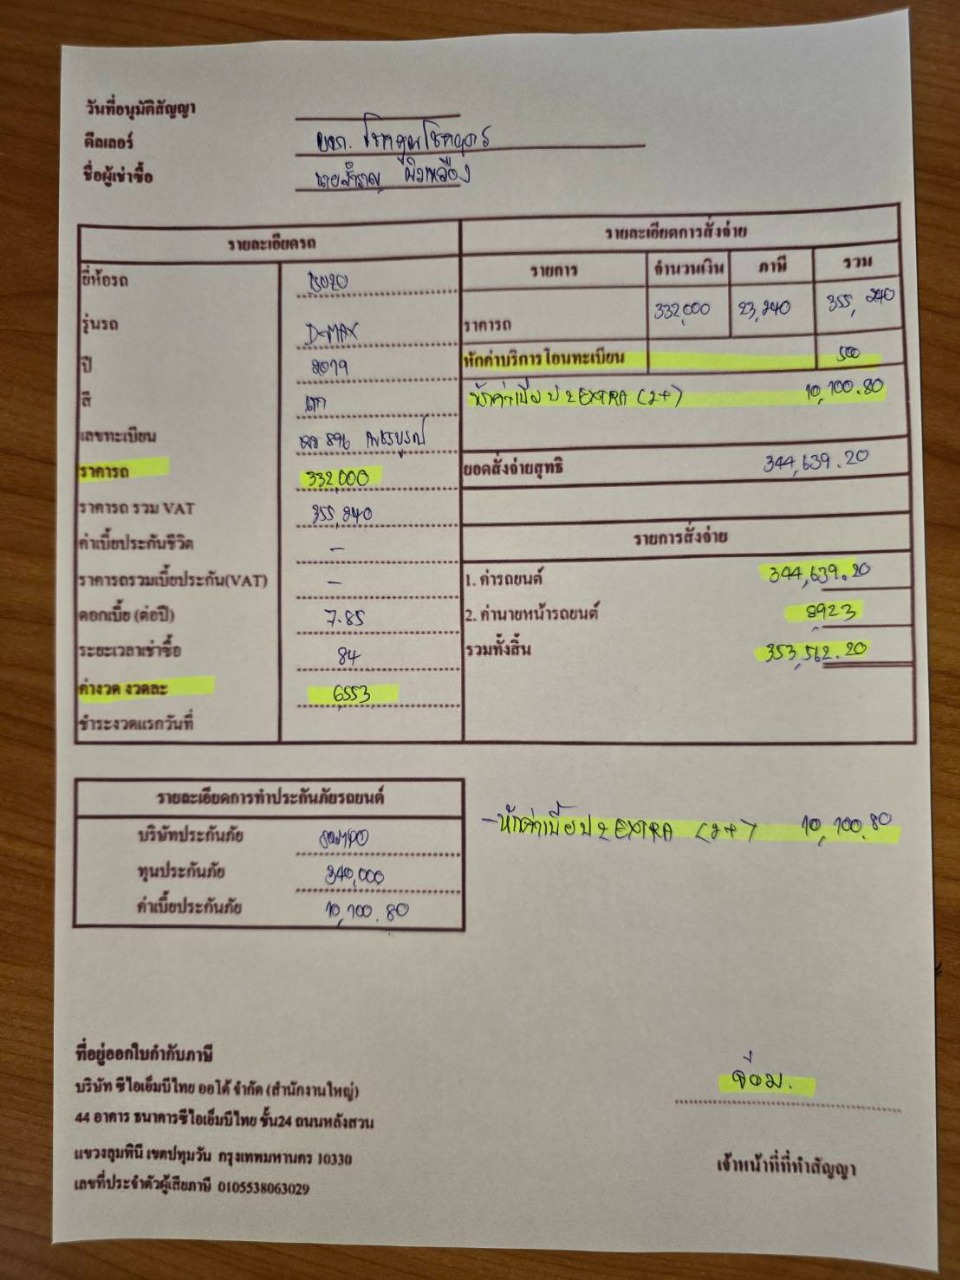 วันที่อนุมัติสัญญา
ดีลเลอร์ บจก. โชคคูณโชคถาวร
ชื่อผู้เช่าซื้อ นายสำราญ ผิวเหลือง
รายละเอียดรถ
ยี่ห้อรถ ISUZU
รุ่นรถ D-MAX
ปี 2019
สี เทา
เลขทะเบียน 896 เพชรบูรณ์
ราคารถ 332,000
ราคารถ รวม VAT 355,240
ค่าเบี้ยประกันชีวิต -
ราคารถรวมเบี้ยประกัน(VAT) -
ดอกเบี้ย (ต่อปี) 7.85
ระยะเวลาเช่าซื้อ 84
ค่างวด งวดละ 6553
ชำระงวดแรกวันที่
รายละเอียดการสั่งจ่าย
รายการ จำนวนเงิน ภาษี รวม
ราคารถ 332,000 23,240 355,240
หักค่าบริการโอนทะเบียน 500
หักค่าเบี้ย ป 2 EXTRA (2+) 10,100.80
ยอดสั่งจ่ายสุทธิ 344,639.20
รายการสั่งจ่าย
1. ค่ารถยนต์ 344,639.20
2. ค่านายหน้ารถยนต์ 8923
รวมทั้งสิ้น 353,562.20
รายละเอียดการทำประกันภัยรถยนต์
บริษัทประกันภัย SOMPO
ทุนประกันภัย 340,000
ค่าเบี้ยประกันภัย 10,100.80
-หักค่าเบี้ย ป 2 EXTRA (2+) 10,100.80
ที่อยู่ออกใบกำกับภาษี
บริษัท ซีไอเอ็มบีไทย ออโต้ จำกัด (สำนักงานใหญ่)
44 อาคาร ธนาคารซีไอเอ็มบีไทย ชั้น24 ถนนหลังสวน
แขวงลุมพินี เขตปทุมวัน กรุงเทพมหานคร 10330
เลขที่ประจำตัวผู้เสียภาษี 0105538063029
จ๋อม.
เจ้าหน้าที่ที่ทำสัญญา